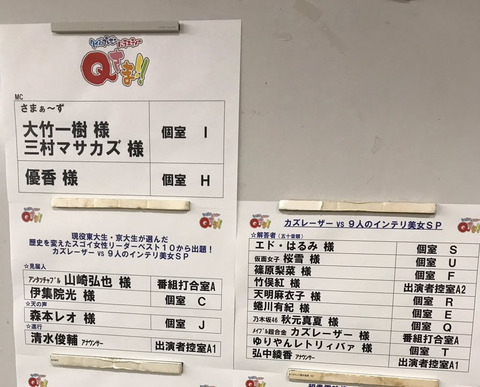 Qさま!!
MC
さまぁ～ず
大竹一樹 様
三村マサカズ 様
個室 I
優香 様
個室 H
現役東大生・京大生が選んだ
歴史を変えたスゴイ女性リーダーベスト10から出題！
カズレーザー vs 9人のインテリ美女SP
☆見届人
アンタッチャブル 山崎弘也 様
番組打合室A
伊集院光 様
個室 C
☆天の声
森本レオ 様
個室 J
☆進行
清水俊輔 アナウンサー
出演者控室A1
カズレーザー vs 9人のインテリ美女SP
☆解答者(五十音順)
エド・はるみ 様 個室 S
仮面女子 桜雪 様 個室 U
篠原梨菜 様 個室 F
竹俣紅 様 出演者控室A2
天明麻衣子 様 個室 R
蜷川有紀 様 個室 E
乃木坂46 秋元真夏 様 個室 Q
メイプル超合金 カズレーザー 様 番組打合室A
ゆりやんレトリィバァ 様 個室 T
弘中綾香 アナウンサー 出演者控室A1